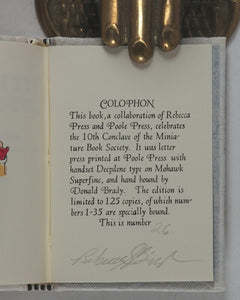 COLOPHON
This book, a collaboration of Rebecca
Press and Poole Press, celebrates
the 10th Conclave of the Minia-
ture Book Society. It was letter
press printed at Poole Press with
handset Deepdene type on Mohawk
Superfine, and hand bound by
Donald Brady. The edition is
limited to 125 copies, of which num-
bers 1-35 are specially bound.
This is number 26